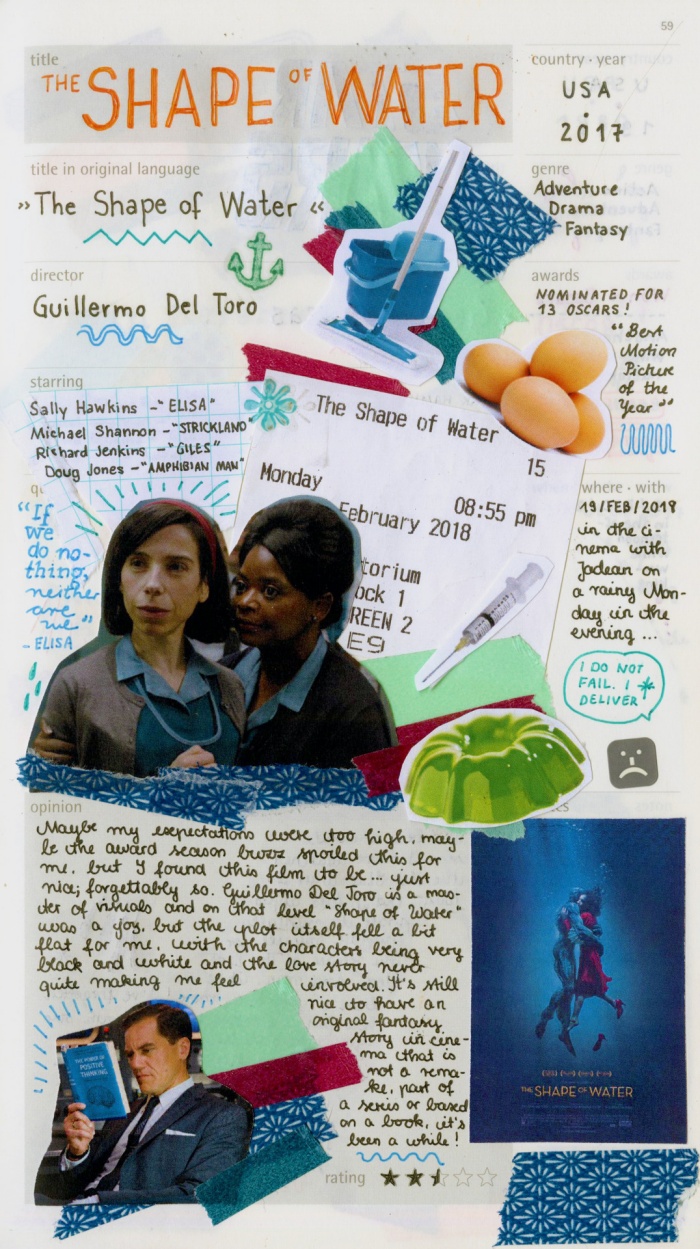 59
title
THE SHAPE OF WATER
country · year
USA
2017
title in original language
»The Shape of Water«
genre
Adventure
Drama
Fantasy
director
Guillermo Del Toro
awards
NOMINATED FOR
13 OSCARS!
"Best
Motion
Picture
of the
Year"
starring
Sally Hawkins - "ELISA"
Michael Shannon - "STRICKLAND"
Richard Jenkins - "GILES"
Doug Jones - "AMPHIBIAN MAN"
The Shape of Water
15
Monday
08:55 pm
February 2018
torium
ock 1
REEN 2
E9
"If
we
do no-
thing,
neither
are
we"
- ELISA
where · with
19/FEB/2018
in the ci-
nema with
Jadean on
a rainy Mon-
day in the
evening ...
I DO NOT
FAIL. I
DELIVER!
opinion
Maybe my expectations were too high, may-
be the award season buzz spoiled this for
me, but I found this film to be... just
nice; forgettably so. Guillermo Del Toro is a mas-
ter of visuals and on that level "Shape of Water"
was a joy, but the plot itself fell a bit
flat for me, with the characters being very
black and white and the love story never
quite making me feel involved. It's still
nice to have an
original fantasy
story in cine-
ma that is
not a rema-
ke, part of
a series or based
on a book, it's
been a while!
THE POWER OF
POSITIVE
THINKING
THE SHAPE OF WATER
rating